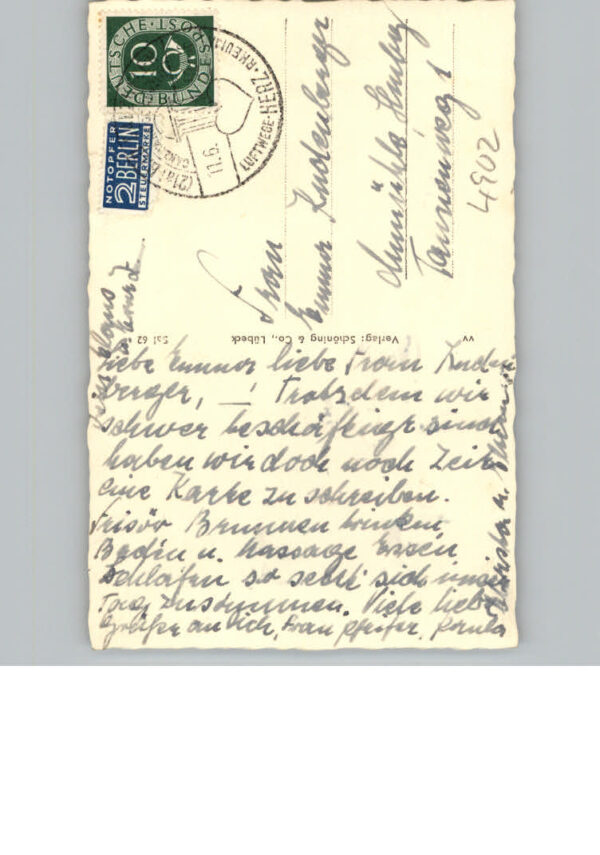 DEUTSCHE BUNDESPOST
10
NOTOPFER
2 BERLIN
STEUERMARKE
(21a)
11.6.
LUFTWEGE-HERZ-RHEU
Frau
Emma
Tannenweg 1
4902
vv Verlag: Schöning & Co., Lübeck Sal 62
Liebe Emma liebe Frau
berger, — ! Trotzdem wir
schwer beschäftingt sind
haben wir doch noch Zeit
eine Karte zu schreiben.
Frisör Brunnen trinken
Baden u. Massage Essen
Schlafen so setzt sich unser
Tag zusammen. Viele liebe
Grüße an Dich, Frau